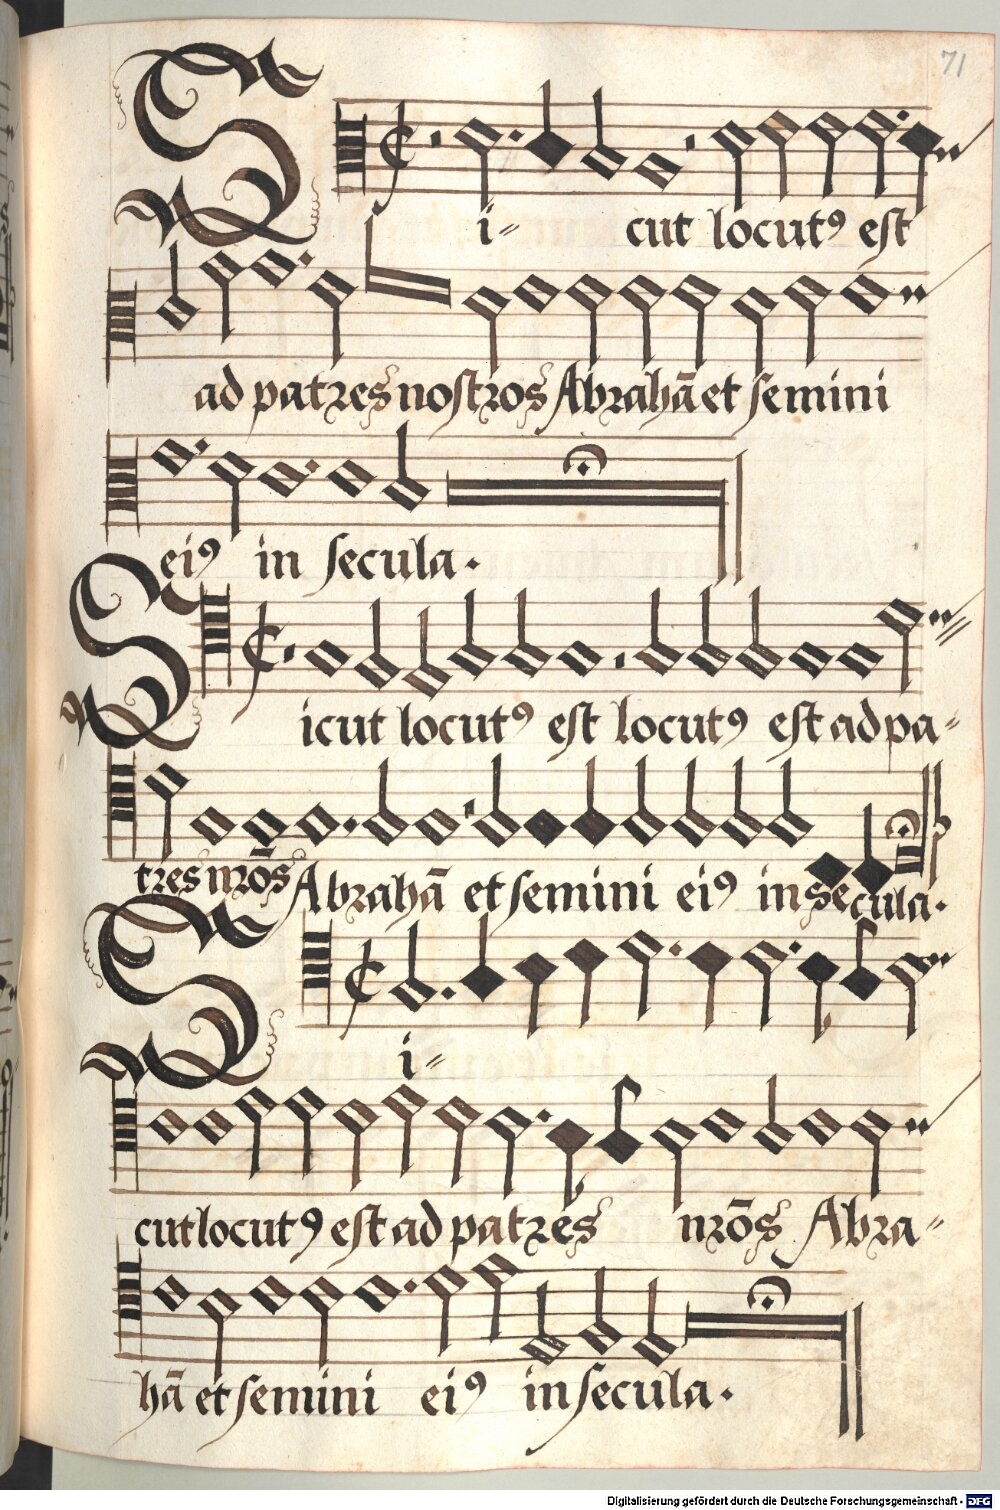 71
Si⸗ cut locutꝰ est
ad patres nostros Abrahā et semini
eiꝰ in secula.
Sicut locutꝰ est locutꝰ est ad pa⸗
tres nrōs Abrahā et semini eiꝰ in secula.
Si⸗
cut locutꝰ est ad patres nrōs Abra⸗
hā et semini eiꝰ in secula.
Digitalisierung gefördert durch die Deutsche Forschungsgemeinschaft - DFG